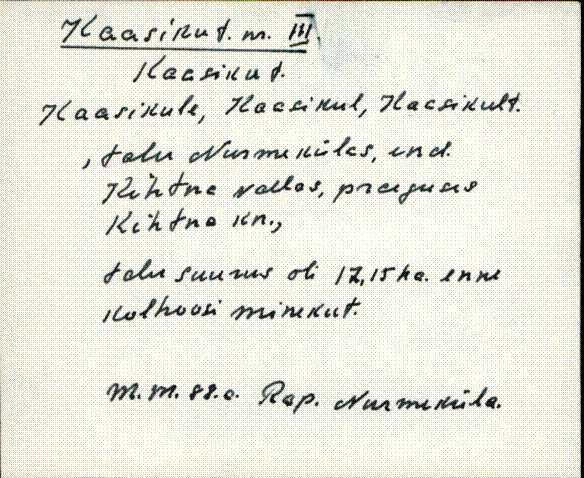 Kaasikut. m. III.
Kaasikut.
Kaasikule, Kaasikul, Kaasikult.
, talu Nurmekülas, end.
Kihtna vallas, praeguses
Kihtna kn.,
talu suurus oli 17,15 ha. enne
kolhoosi minekut.
M. M. 88.a. Rap. Nurmeküla.